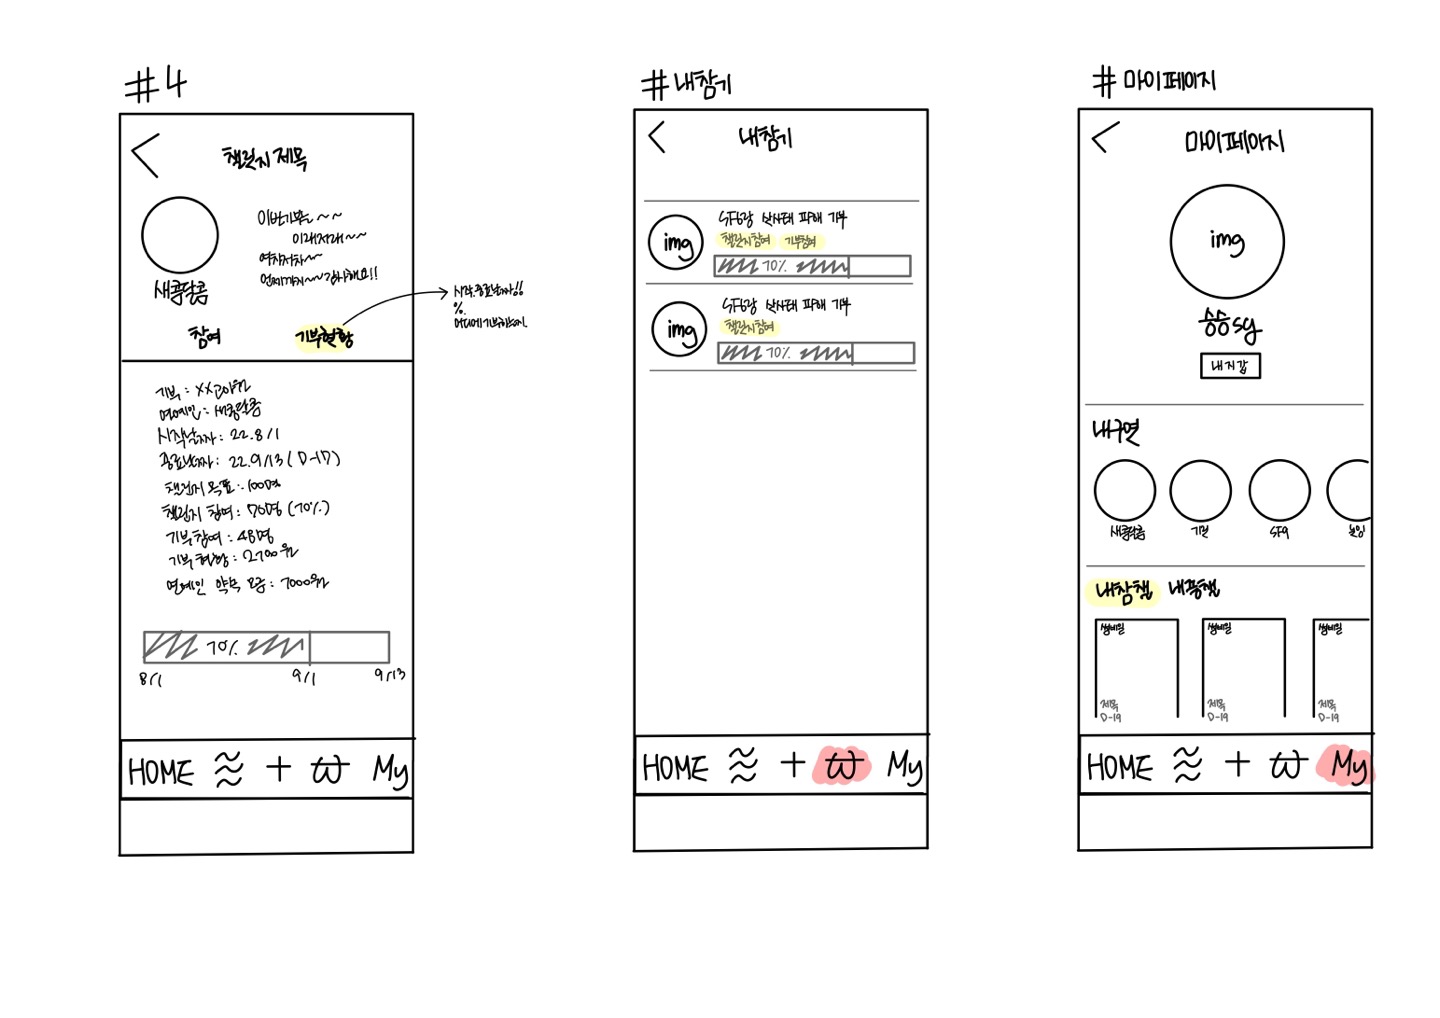 #4
챌린지 제목
이번기부는 ~ ~
이래저래 ~~
여차저차~~
언제까지~~ 감사해요!!
새콤달콤
참여 기부현황
시작.종료날짜!!
%.
어디에기부하는지.
기부 : XX고아원
연예인 : 새콤달콤
시작날짜 : 22.8/1
종료날짜 : 22.9/13 (D-17)
챌린지 목표 : 100명
챌린지 참여 : 70명 (70%)
기부참여 : 48명
기부현황 : 2700원
연예인 약속 모금 : 7000원
70%
8/1 9/1 9/13
HOME + ₩ My
#내참기
내참기
img
SF6랑 산사태 피해 기부
챌린지참여 기부참여
70%
img
SF6랑 산사태 피해 기부
챌린지참여
70%
HOME + ₩ My
#마이페이지
마이페이지
img
승승sy
내지갑
내구연
새콤달콤 기월 SF9
내참챌 내픙챌
썸네일 썸네일 썸네일
제목 제목 제목
D-19 D-19 D-19
HOME + ₩ My